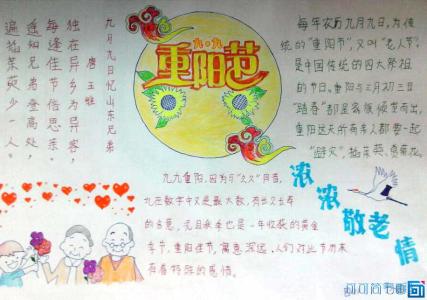 九月九日忆山东兄弟
唐 王维
独在异乡为异客，
每逢佳节倍思亲。
遥知兄弟登高处，
遍插茱萸少一人。
九·九
重阳节
每年农历九月九日，为传
统的"重阳节"，又叫"老人节"，
是中国传统的四大祭祖
的节日。重阳与三月初三日
"踏春"都是家族倾室而出，
重阳这天所有亲人都要一起
"避灾"，插茱萸、赏菊花。
九九重阳，因为与"久久"同音，
九在数字中又是最大数，有长久长寿
的含意，况且秋季也是一年收获的黄金
季节，重阳佳节，寓意深远，人们对此节历来
有着特殊的感情。
浓浓
敬老
情